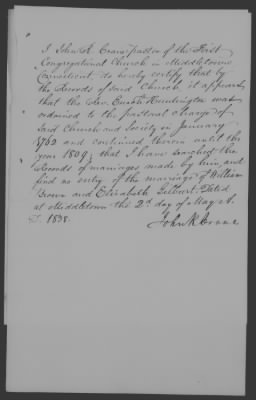 I John R. Crane pastor of the First
Congregational Church in Middletown
Connecticut do hereby certify that by
the Records of said Church, it appears
that the Rev. Enoch Huntington was
ordained to the pastoral charge of
said Church and Society in January
1762 and continued therein until the
year 1809; that I have searched the
Records of marriages made by him, and
find no entry of the marriage of William
Brown and Elizabeth Gilbert. Dated
at Middletown the 2d day of May A.
D. 1838.
John R. Crane